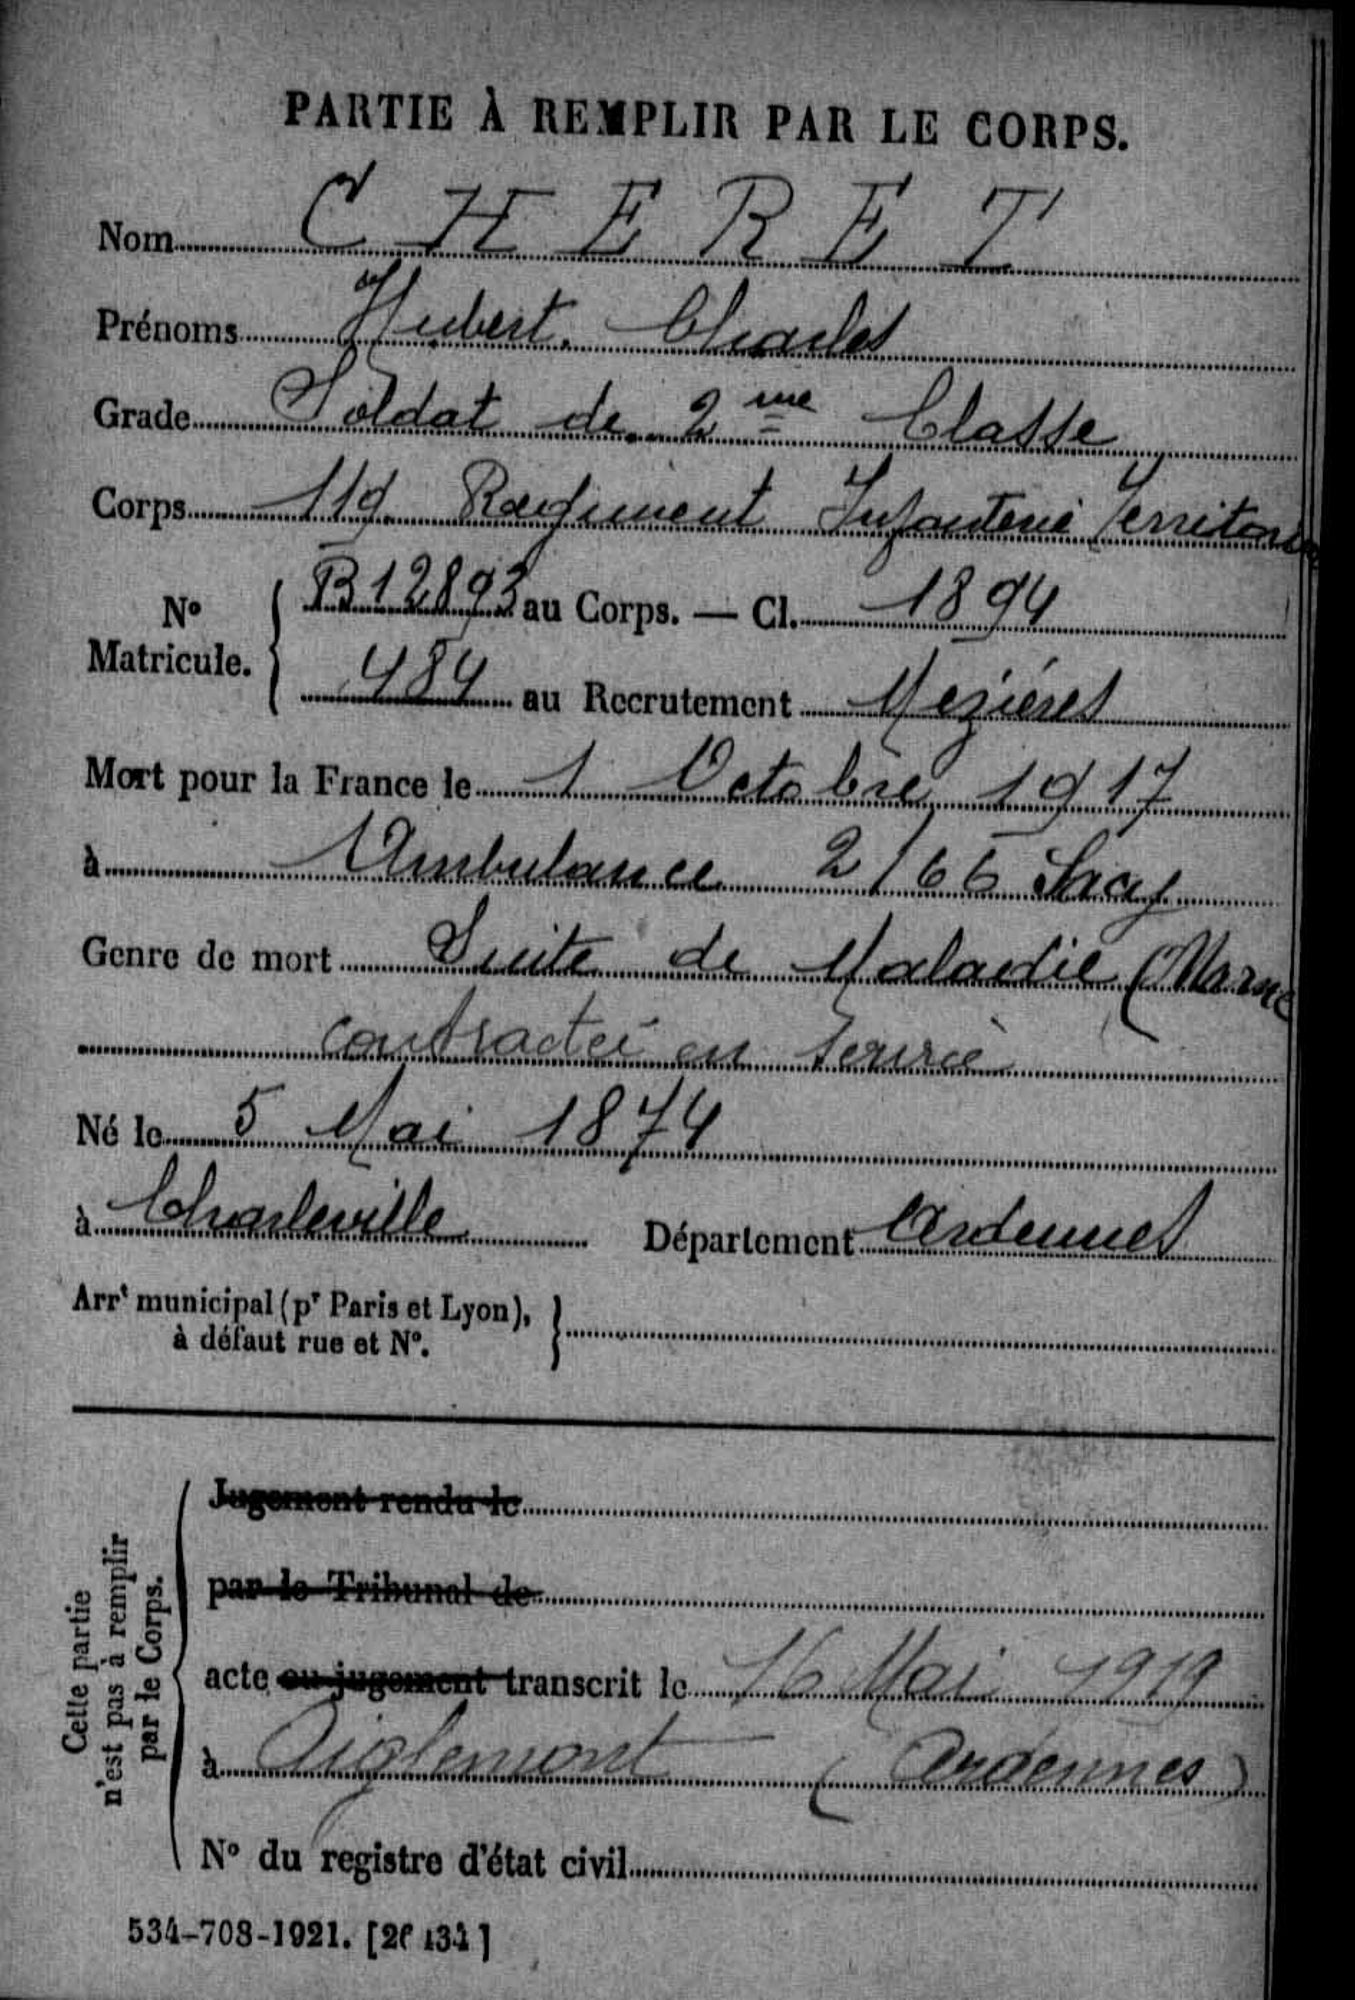 PARTIE À REMPLIR PAR LE CORPS.
Nom CHERET
Prénoms Hubert. Charles
Grade Soldat de 2me Classe
Corps 119 Regiment Infanterie Territorial
No Matricule. { B12893 au Corps. — Cl. 1894
484 au Recrutement Mezières
Mort pour la France le 1 Octobre 1917
à Ambulance 2/66 Sacy
Genre de mort Suite de Maladie (Marne
contractée en Service
Né le 5 Mai 1874
à Charleville Département Ardennes
Arrt municipal (pr Paris et Lyon),
à défaut rue et No. }
Cette partie
n'est pas à remplir
par le Corps.
Jugement rendu le
par le Tribunal de
acte ou jugement transcrit le 16 Mai 1919
à Aiglemont (Ardennes)
No du registre d'état civil
534-708-1921.